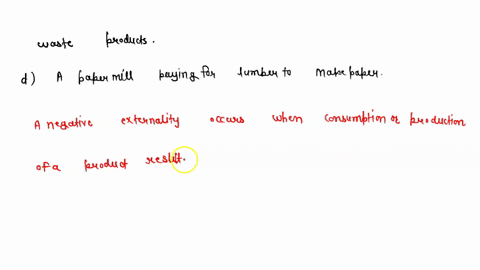 waste products.
d) A paper mill paying for lumber to make paper.
A negative externality occurs when consumption or production
of a product reslit.